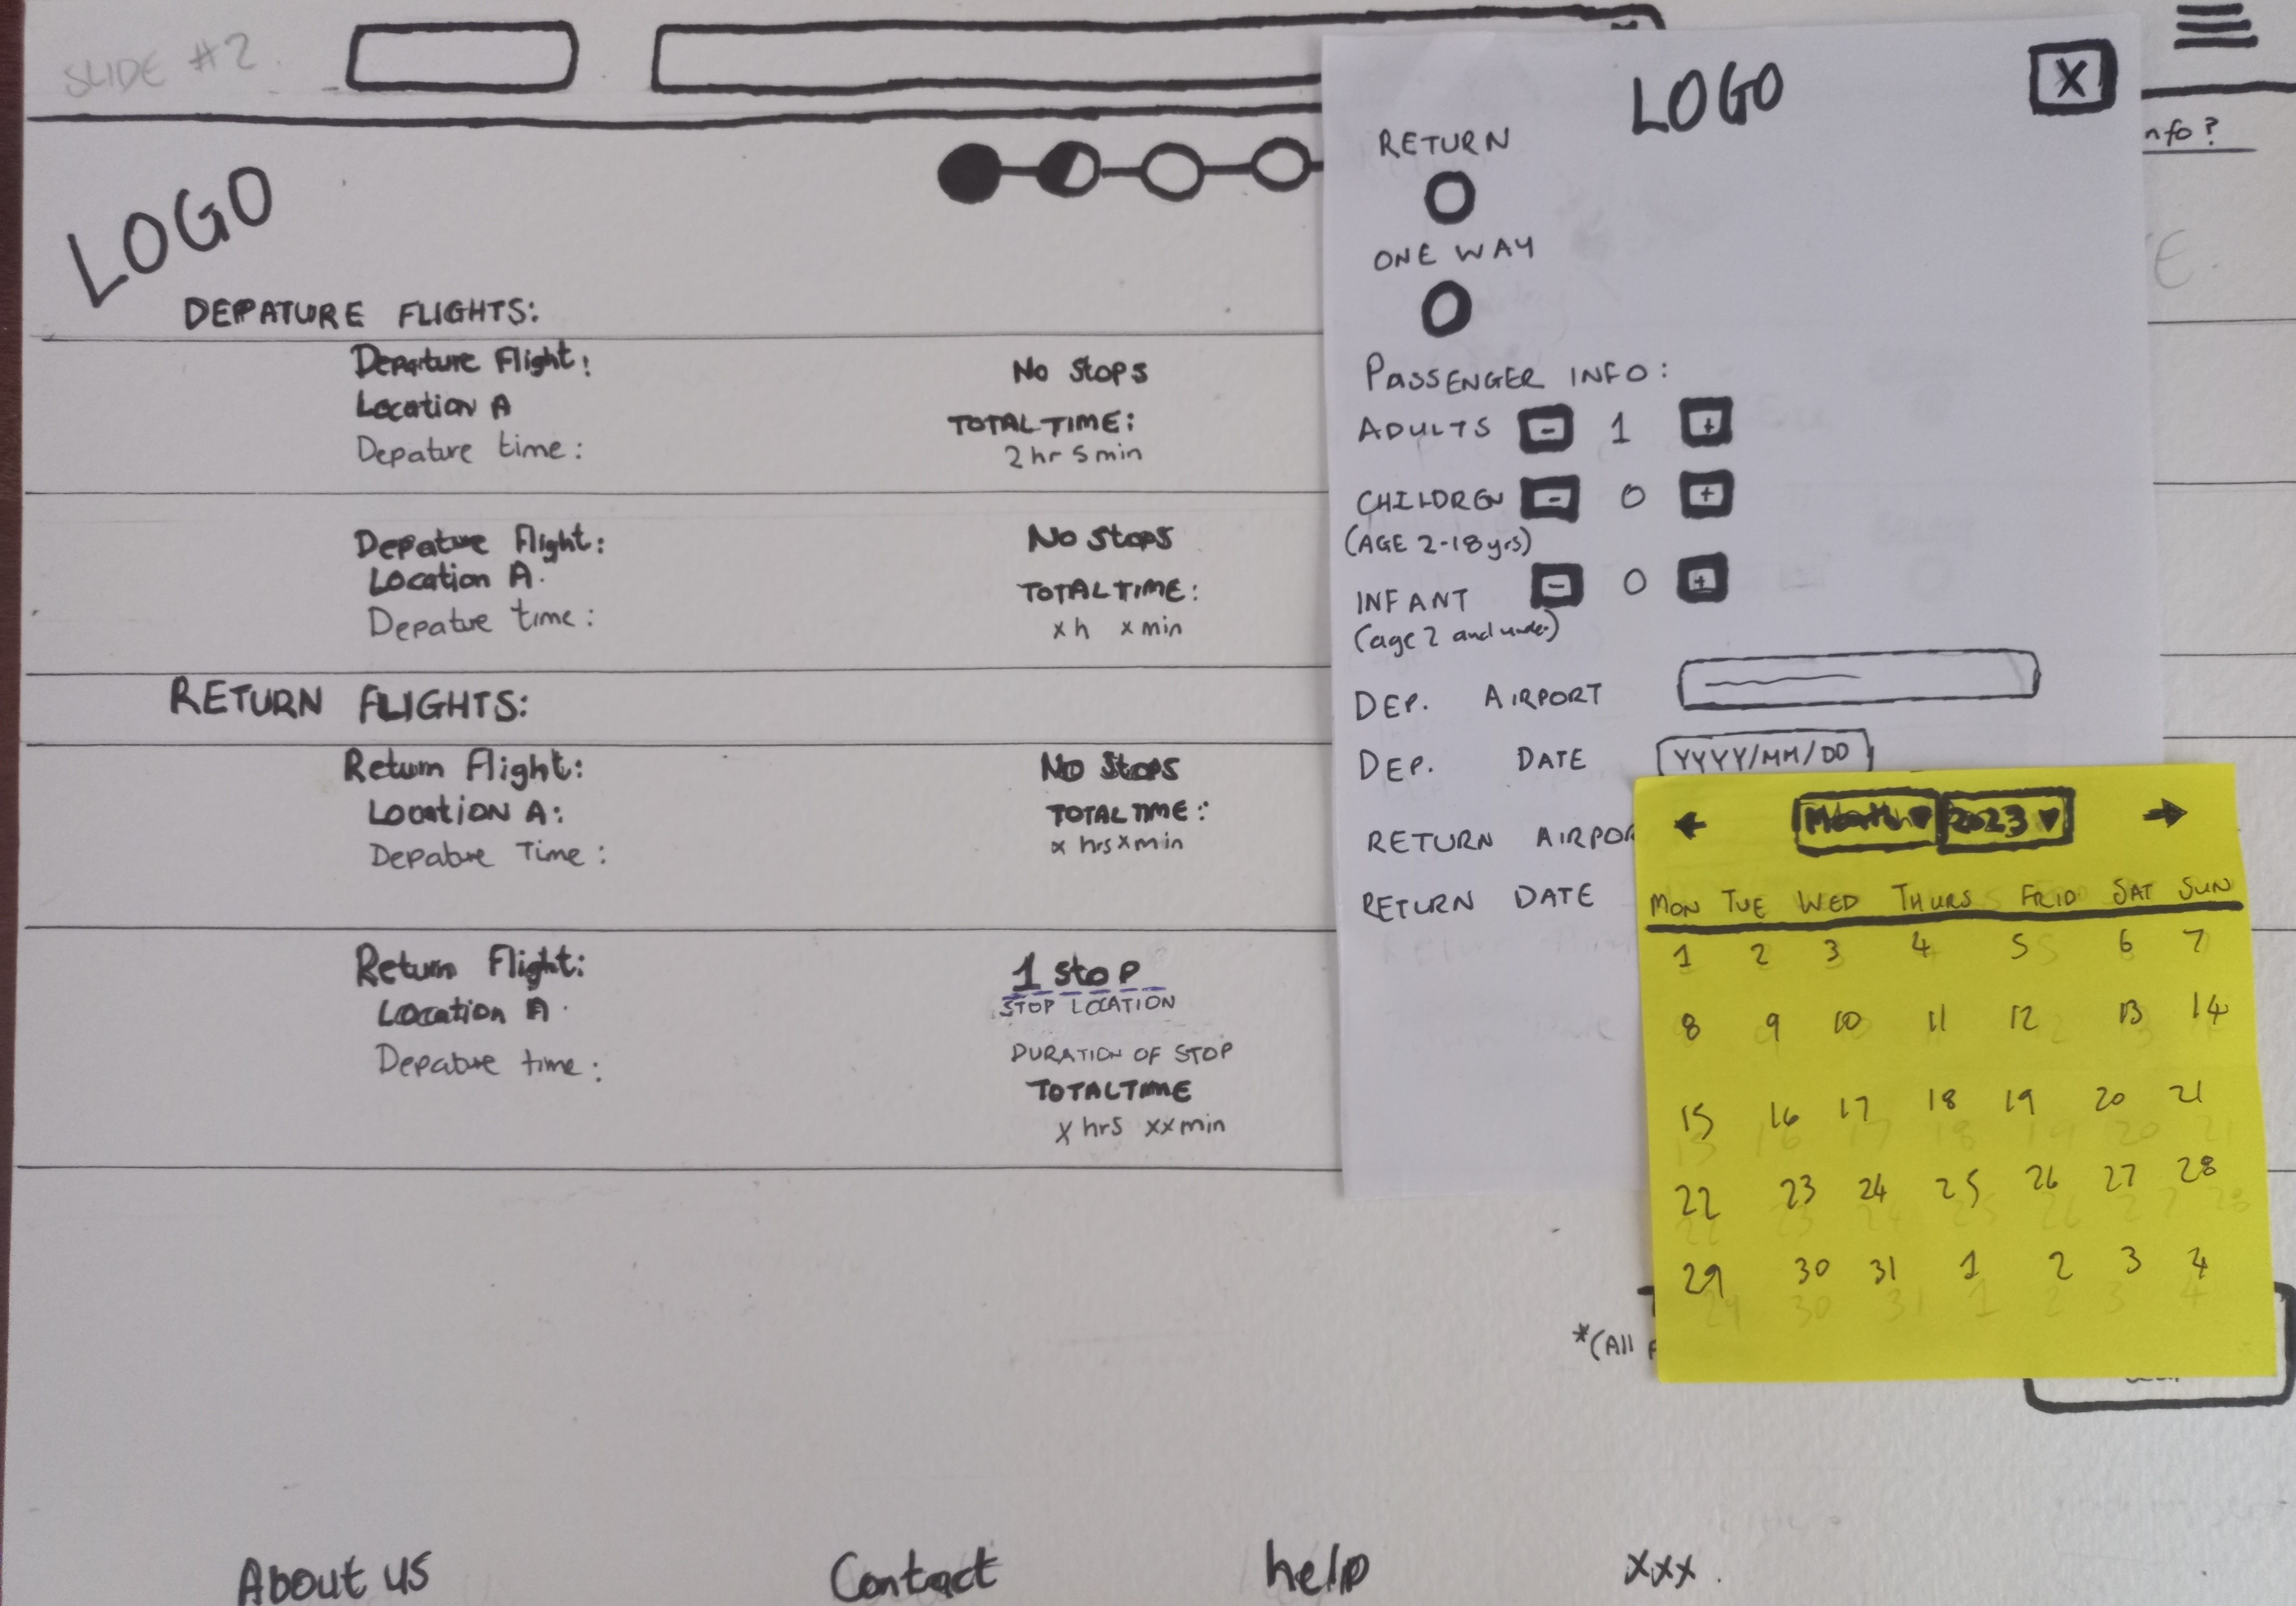 SLIDE #2.
LOGO
DEPATURE FLIGHTS:
Departure Flight:
Location A
Depature time:
No Stops
TOTAL TIME:
2 hr 5 min
Depature Flight:
Location A.
Depature time:
No Stops
TOTAL TIME:
x h x min
RETURN FLIGHTS:
Return Flight:
Location A:
Depature Time:
No Stops
TOTAL TIME:
x hrs x min
Return Flight:
Location A.
Depature time:
1 stop
STOP LOCATION
DURATION OF STOP
TOTAL TIME
x hrs xx min
About us
Contact
help
xxx.
LOGO
X
RETURN
ONE WAY
PASSENGER INFO:
ADULTS - 1 +
CHILDREN - 0 +
(AGE 2-18 yrs)
INFANT - 0 +
(age 2 and under)
DEP. AIRPORT
DEP. DATE YYYY/MM/DD
RETURN AIRPOR
RETURN DATE
nfo?
Month 2023
MON TUE WED THURS FRID SAT SUN
1 2 3 4 5 6 7
8 9 10 11 12 13 14
15 16 17 18 19 20 21
22 23 24 25 26 27 28
29 30 31 1 2 3 4
*(All